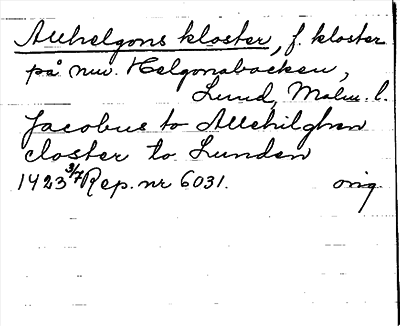 Allhelgons kloster, f. kloster
på nuv. Helgonabacken,
Lund, Malm. l.
Jacobus to Allehilghen
closter to Lunden
1423 3/7 Rep. nr 6031. orig